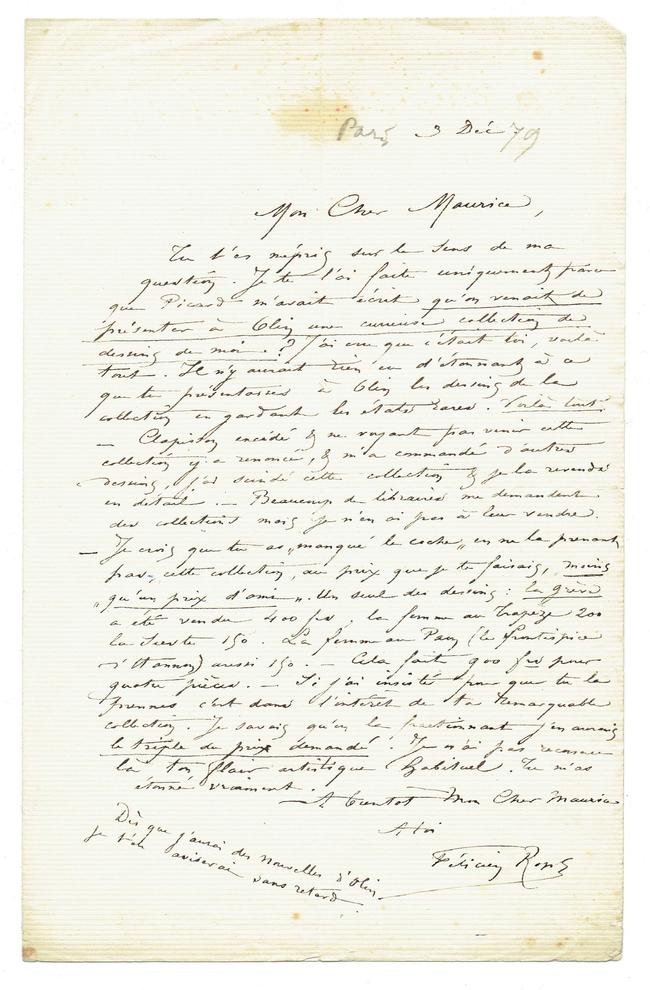 Paris 3 Déc 79
Mon Cher Maurice,
Tu t'es mépris sur le sens de ma
question. Je te l'ai faite uniquement parce
que Picard m'avait écrit qu'on venait de
présenter à Olin une curieuse collection de
dessins de moi. ? J'ai cru que c'était toi, voilà
tout. Il n'y aurait rien eu d'étonnant à ce
que tu présentasses à Olin les dessins de la
collection en gardant les états rares. Voilà tout!
— Clapisson excédé & ne voyant pas venir cette
collection y a renoncé, & m'a commandé d'autres
dessins, j'ai scindé cette collection & je la revends
en détail. — Beaucoup de libraires me demandent
des collections mais je n'en ai pas à leur vendre.
— Je crois que tu as „manqué le coche„ en ne la prenant
pas, cette collection, au prix que je te faisais, moins
„qu'un prix d'ami„. Un seul des dessins: la grève
a été vendu 400 frs, la femme au Trapèze 200
la Sieste 150. La femme au Pan, (le frontispice
d'Hannon) aussi 150. — Cela fait 900 frs pour
quatre pièces. — Si j'ai insisté pour que tu la
prennes c'est dans l'intérêt de ta remarquable
collection. Je savais qu'en la fractionnant j'en aurais
le triple du prix demandé! Je n'ai pas reconnu
là ton flair artistique habituel. Tu m'as
étonné vraiment.
— A bientot Mon Cher Maurice
A toi
Félicien Rops
Dès que j'aurai des nouvelles d'Olin
je t'en aviserai sans retard.